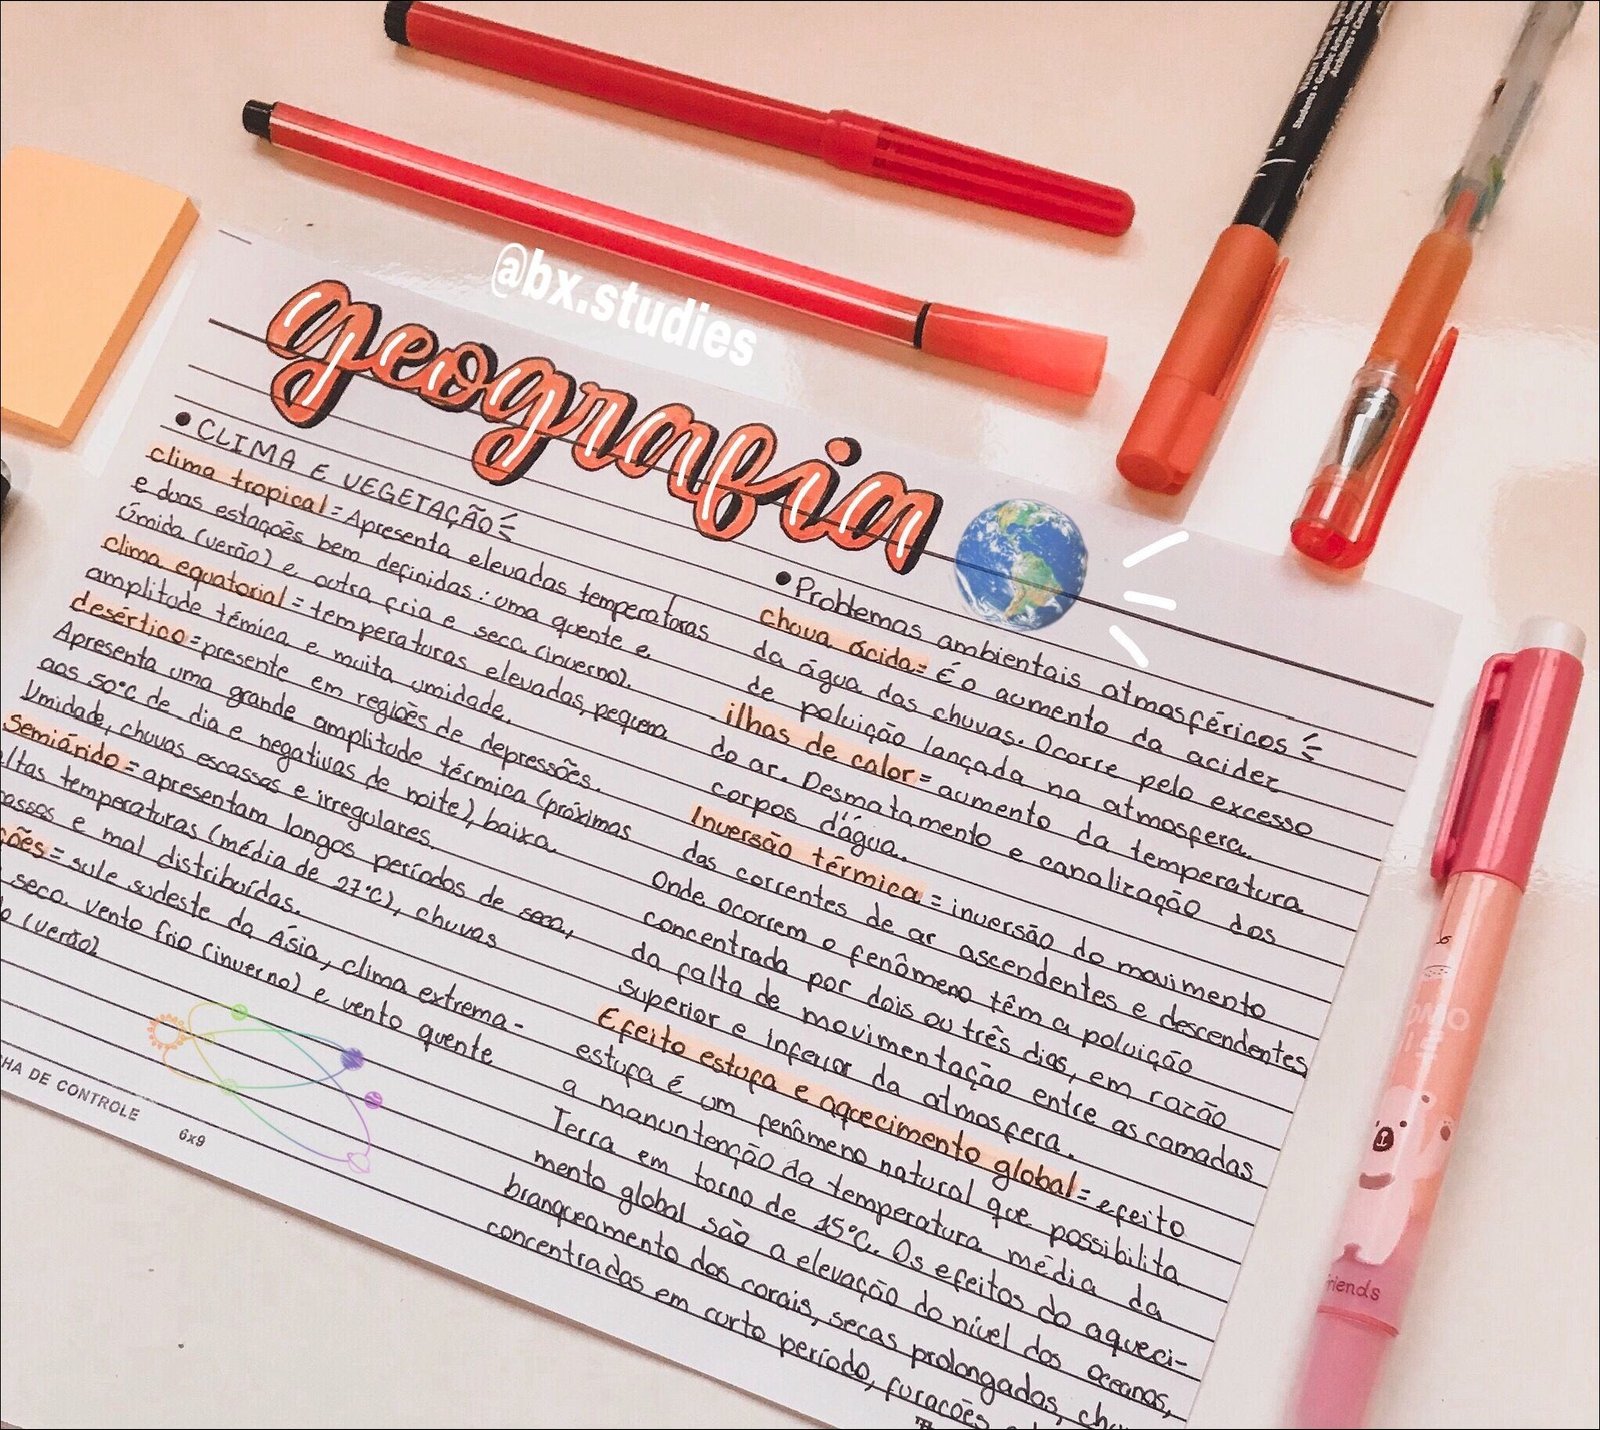 @bx.studies
geografia
• CLIMA E VEGETAÇÃO
clima tropical = Apresenta elevadas temperaturas
e duas estações bem definidas: uma quente e
Úmida (verão) e outra fria e seca (inverno).
clima equatorial = temperaturas elevadas, pequena
amplitude térmica e muita umidade.
desértico = presente em regiões de depressões.
Apresenta uma grande amplitude térmica (próximas
aos 50°C de dia e negativas de noite), baixa
Umidade, chuvas escassas e irregulares.
Semiárido = apresentam longos períodos de seca,
altas temperaturas (média de 27°C), chuvas
e mal distribuídas.
= sul e sudeste da Ásia, clima extrema-
seco. vento frio (inverno) e vento quente
(verão)
HA DE CONTROLE
6x9
• Problemas ambientais atmosféricos
chuva ácida = É o aumento da acidez
da água das chuvas. Ocorre pelo excesso
de poluição lançada na atmosfera.
ilhas de calor = aumento da temperatura
do ar. Desmatamento e canalização dos
corpos d'água.
Inversão térmica = inversão do movimento
das correntes de ar ascendentes e descendentes
Onde ocorrem o fenômeno têm a poluição
concentrada por dois ou três dias, em razão
da falta de movimentação entre as camadas
superior e inferior da atmosfera.
Efeito estufa e aquecimento global = efeito
estufa é um fenômeno natural que possibilita
a manuntenção da temperatura média da
Terra em torno de 15°C. Os efeitos do aqueci-
mento global são a elevação do nível dos oceanos,
branqueamento dos corais, secas prolongadas,
concentradas em curto período, furacões
Students • Graphic Artists
Architects
riends